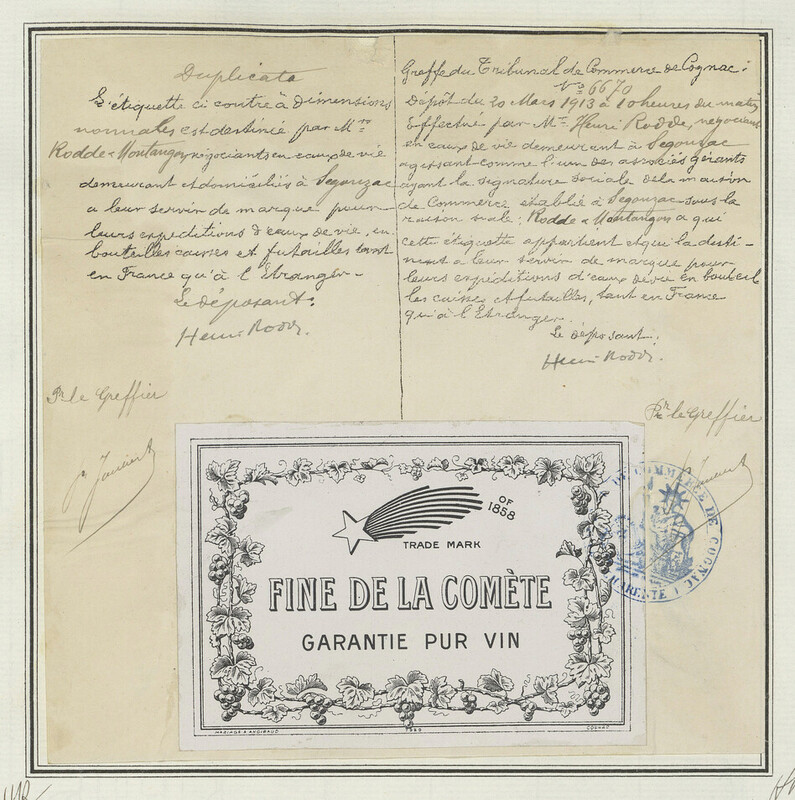 Duplicata
L'étiquette ci contre à Dimensions
normales est destinée par Mrs
Rodde & Montangon, négociants en eaux de vie
demeurant et domiciliés à Segonzac
a leur servir de marque pour
leurs expéditions d'eaux de vie, en
bouteilles caisses et futailles tant
en France qu'à l'Etranger -
Le déposant:
Henri Rodde.
Pr le Greffier
Greffe du Tribunal de Commerce de Cognac:
No 6670
Dépôt du 20 Mars 1913 à 10 heures du matin
Effectué par Mr. Henri Rodde, négociant
en eaux de vie demeurant à Segonzac
agissant comme l'un des associés gérants
ayant la signature sociale de la maison
de Commerce établie à Segonzac sous la
raison sociale: Rodde & Montangon a qui
cette étiquette appartient et qui la desti-
nent a leur servir de marque pour
leurs expéditions d'eaux de vie en bouteil
les caisses et futailles, tant en France
qu'à l'Etranger.
Le déposant:
Henri Rodde.
Pr le Greffier
OF
1858
TRADE MARK
FINE DE LA COMÈTE
GARANTIE PUR VIN
MARIAGE & AUGIRAUD
COGNAC
DE COMMERCE DE COGNAC
CHARENTE